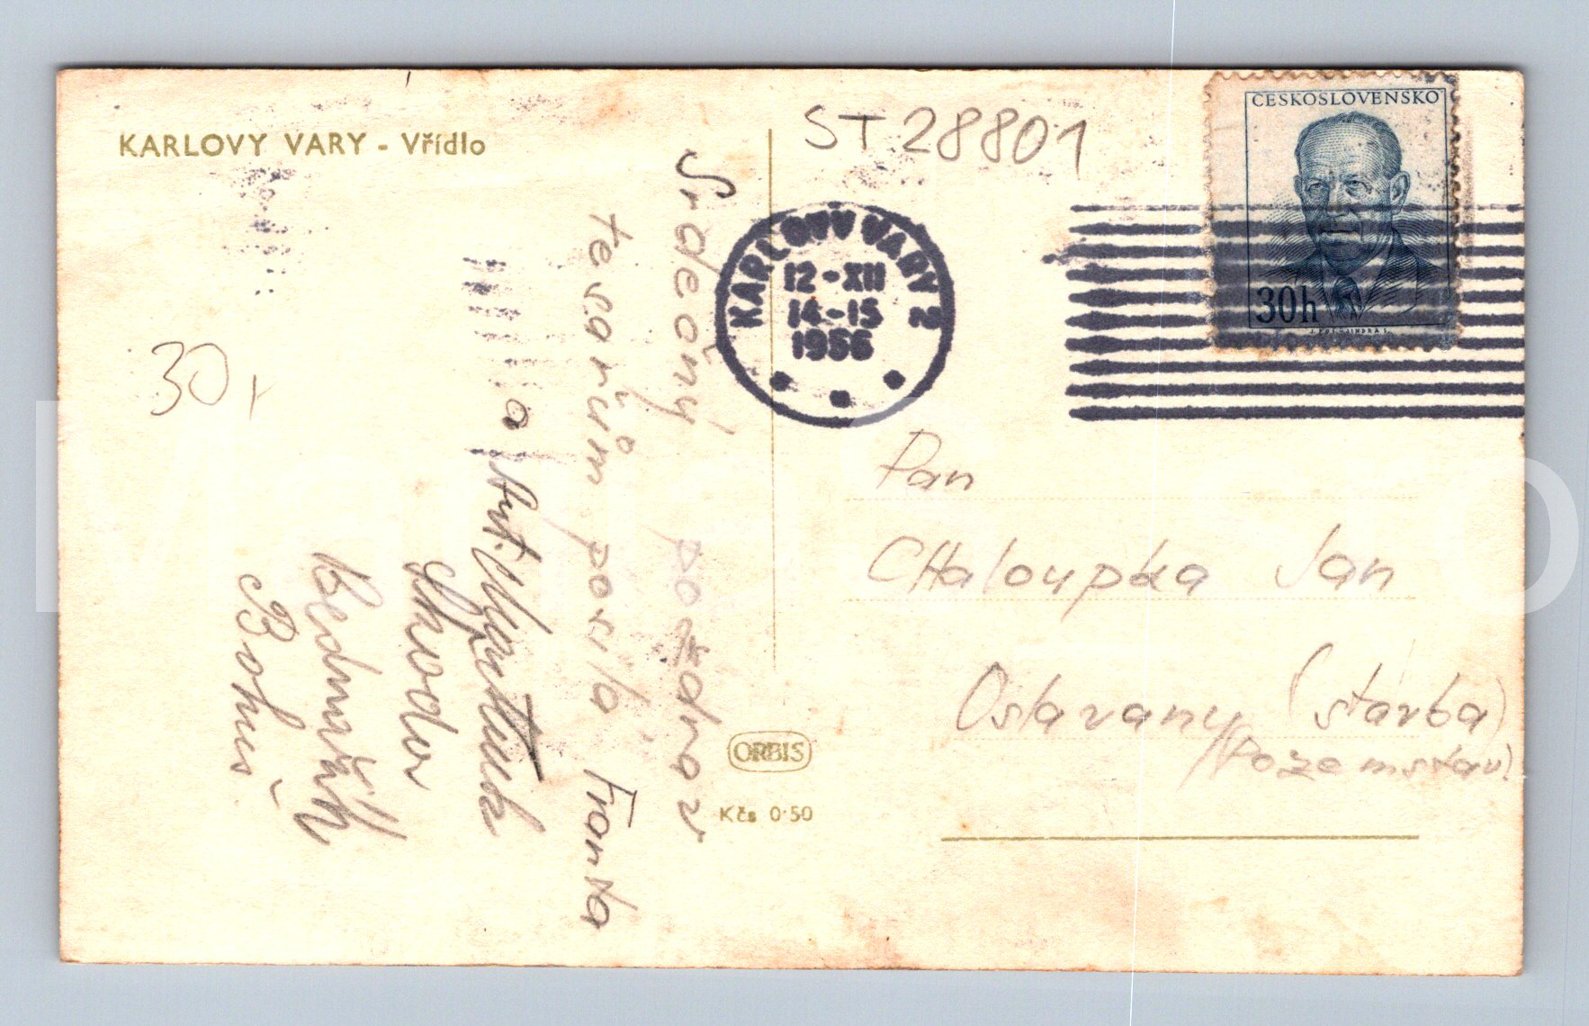 KARLOVY VARY - Vřídlo
ST 28801
ČESKOSLOVENSKO
30h
KARLOVY VARY 2
12-XII
14-15
1956
30,
Srdečný pozdrav
tesařům posílá Franta
a Ant.
Bedmařík
Bohuš
Pan
CHaloupka Jan
Oslavany (stavba)
(Pozemstav)
ORBIS
Kčs 0·50